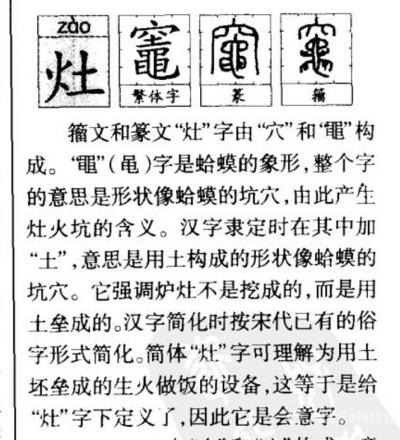 zào
灶
繁体字
篆
籀
籀文和篆文“灶”字由“穴”和“黽”构
成。“黽”(黾)字是蛤蟆的象形,整个字
的意思是形状像蛤蟆的坑穴,由此产生
灶火坑的含义。汉字隶定时在其中加
“土”,意思是用土构成的形状像蛤蟆的
坑穴。它强调炉灶不是挖成的,而是用
土垒成的。汉字简化时按宋代已有的俗
字形式简化。简体“灶”字可理解为用土
坯垒成的生火做饭的设备,这等于是给
“灶”字下定义了,因此它是会意字。